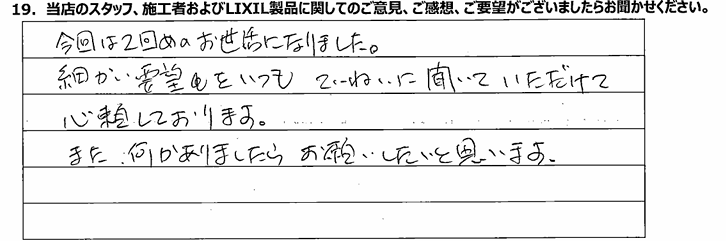 19. 当店のスタッフ、施工者およびLIXIL製品に関してのご意見、ご感想、ご要望がございましたらお聞かせください。
今回は2回めのお世話になりました。
細かい要望もをいつも てぃーねいに 聞いて いただけて
心頼しております。
また 何かありましたら お願いしたいと思います。